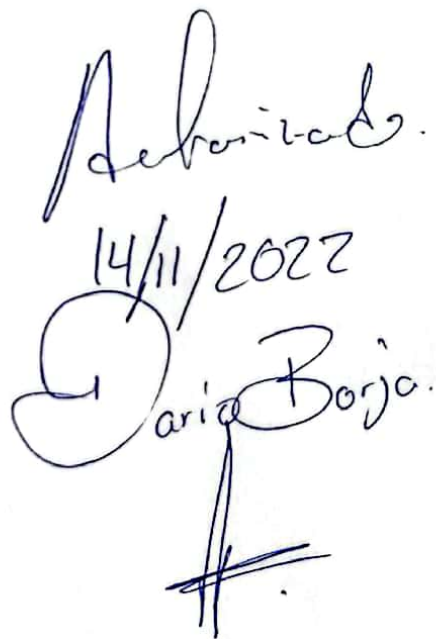 Autorizado.
14/11/2022
Dario Borja.